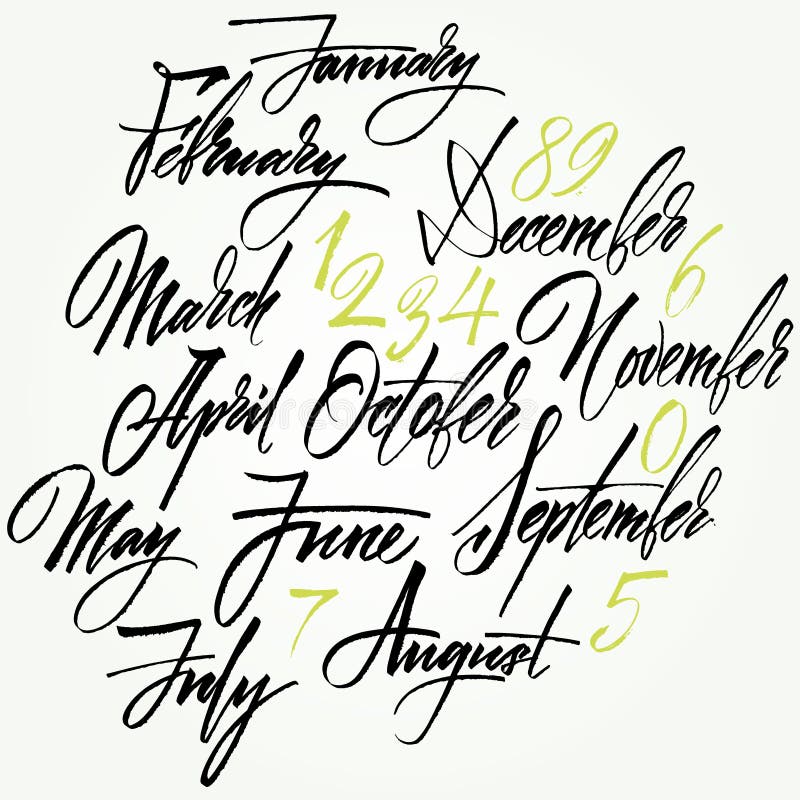 January
February
89
December
March
1
234
6
November
April
October
0
May
June
September
7
5
July
August